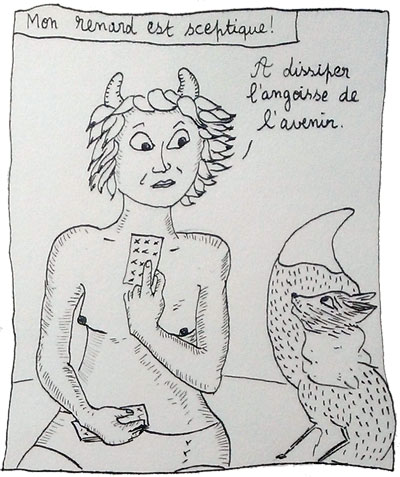 Mon renard est sceptique!
A dissiper
l'angoisse de
l'avenir.